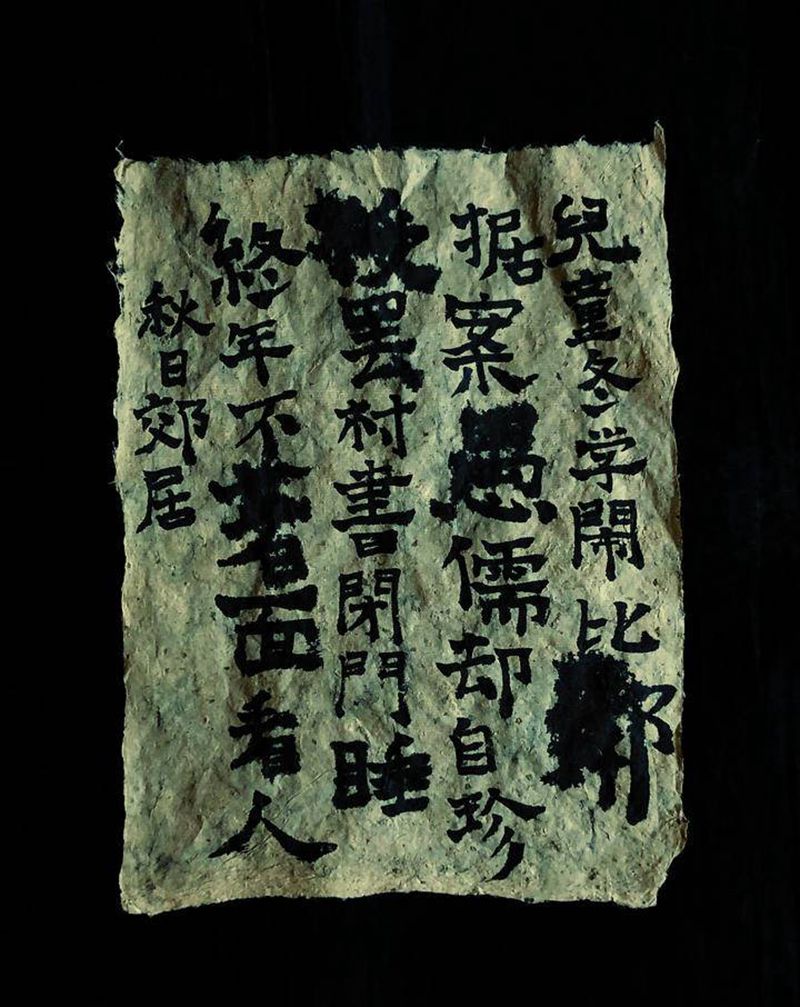 兒童冬学鬧比鄰
据案愚儒却自珍
授罢村書閉門睡
終年不著面看人
秋日郊居